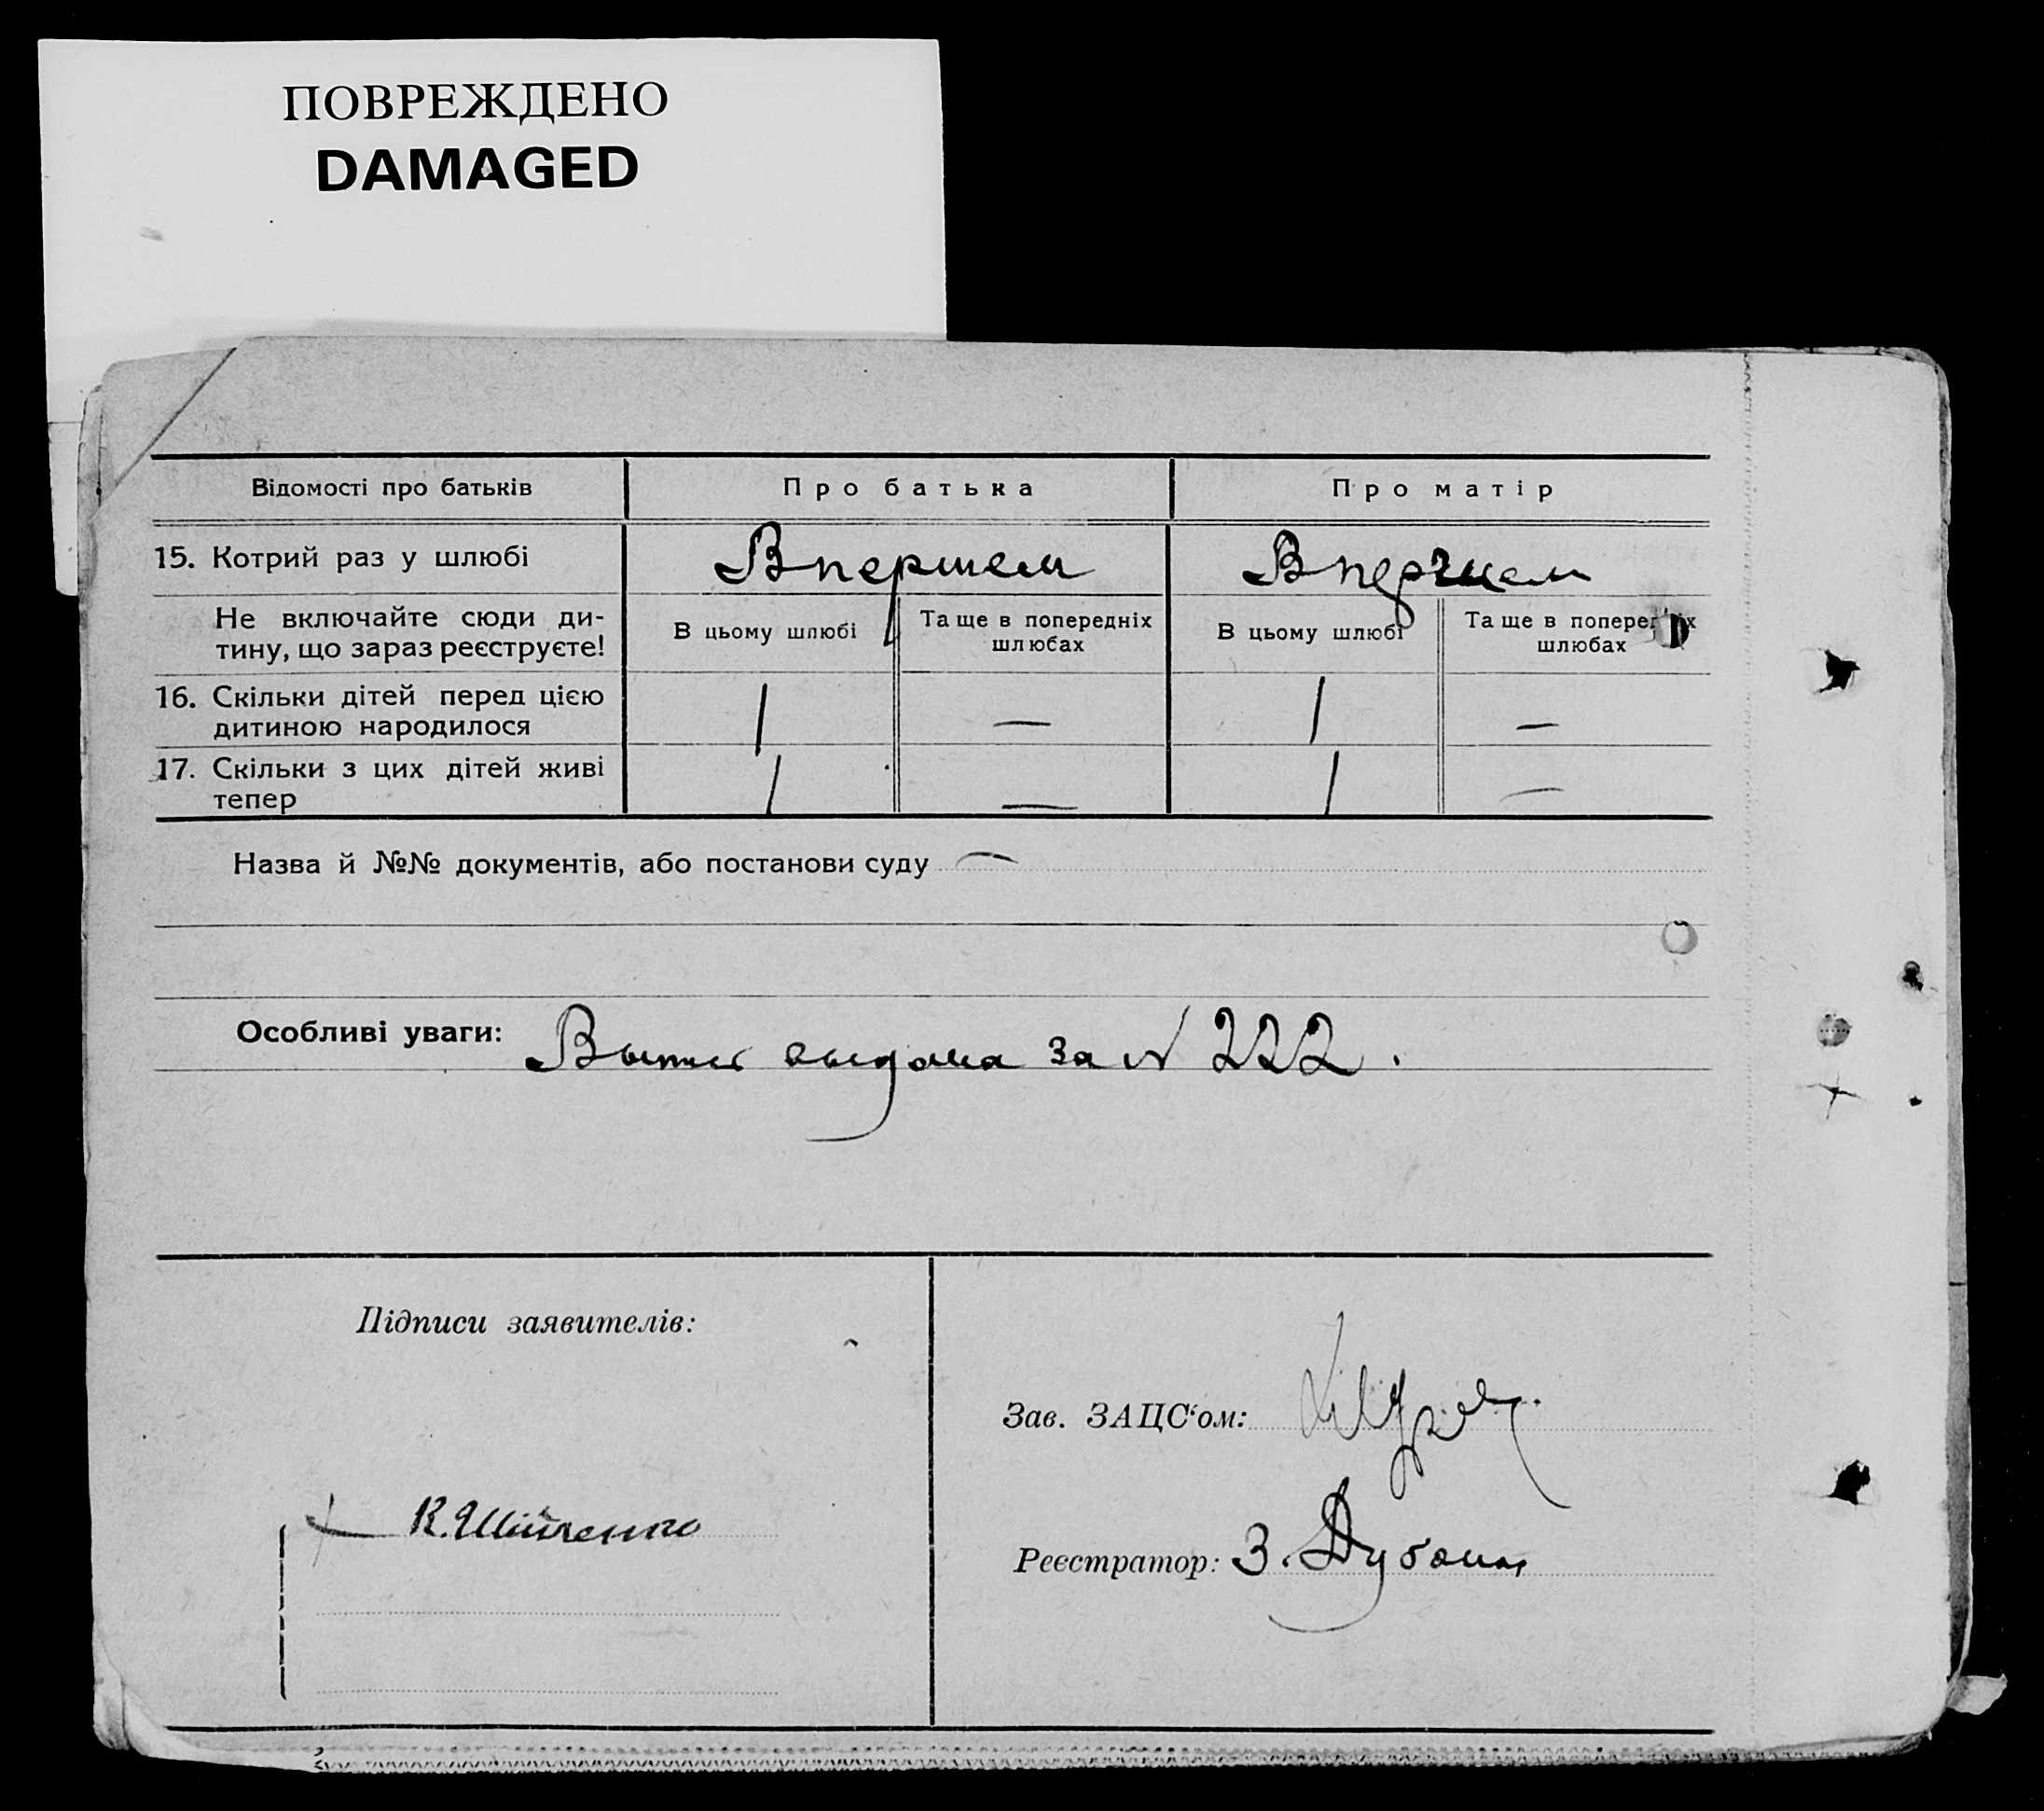 ПОВРЕЖДЕНО
DAMAGED
Відомості про батьків
Про батька
Про матір
15. Котрий раз у шлюбі
Впершем
Впершем
Не включайте сюди ди-
тину, що зараз реєструєте!
В цьому шлюбі
Та ще в попередніх
шлюбах
В цьому шлюбі
Та ще в попередніх
шлюбах
16. Скільки дітей перед цією
дитиною народилося
1
—
1
—
17. Скільки з цих дітей живі
тепер
1
—
1
—
Назва й №№ документів, або постанови суду —
Особливі уваги: выдана за N 222.
Підписи заявителів:
Зав. ЗАЦС‘ом:
К.
Реєстратор: З.